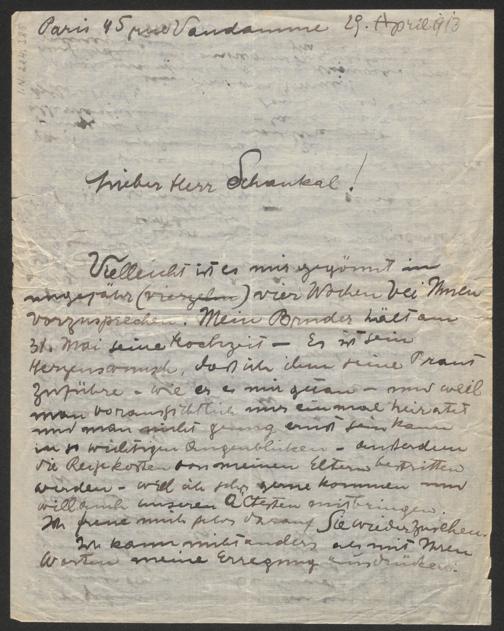 Paris 45 rue Vandamme 29. April 1913
Lieber Herr Schaukal!
Vielleicht ist es mir gegönnt in
ungefähr (vierzehn) vier Wochen bei Ihnen
vorzusprechen. Mein Bruder hält am
31. Mai seine Hochzeit – Es ist sein
Herzenswunsch, daß ich ihm seine Braut
zuführe – wie er es mir getan – und weil
man voraussichtlich nur einmal heiratet
und man nicht genug ernst sein kann
in so wichtigen Augenblicken – außerdem
die Reisekosten von meinen Eltern bestritten
werden – will ich sehr gerne kommen und
will auch unseren Ältesten mitbringen.
Ich freue mich sehr darauf Sie wiederzusehen.
Ich kann nicht anders als mit Ihren
Worten meine Erregung ausdrücken: